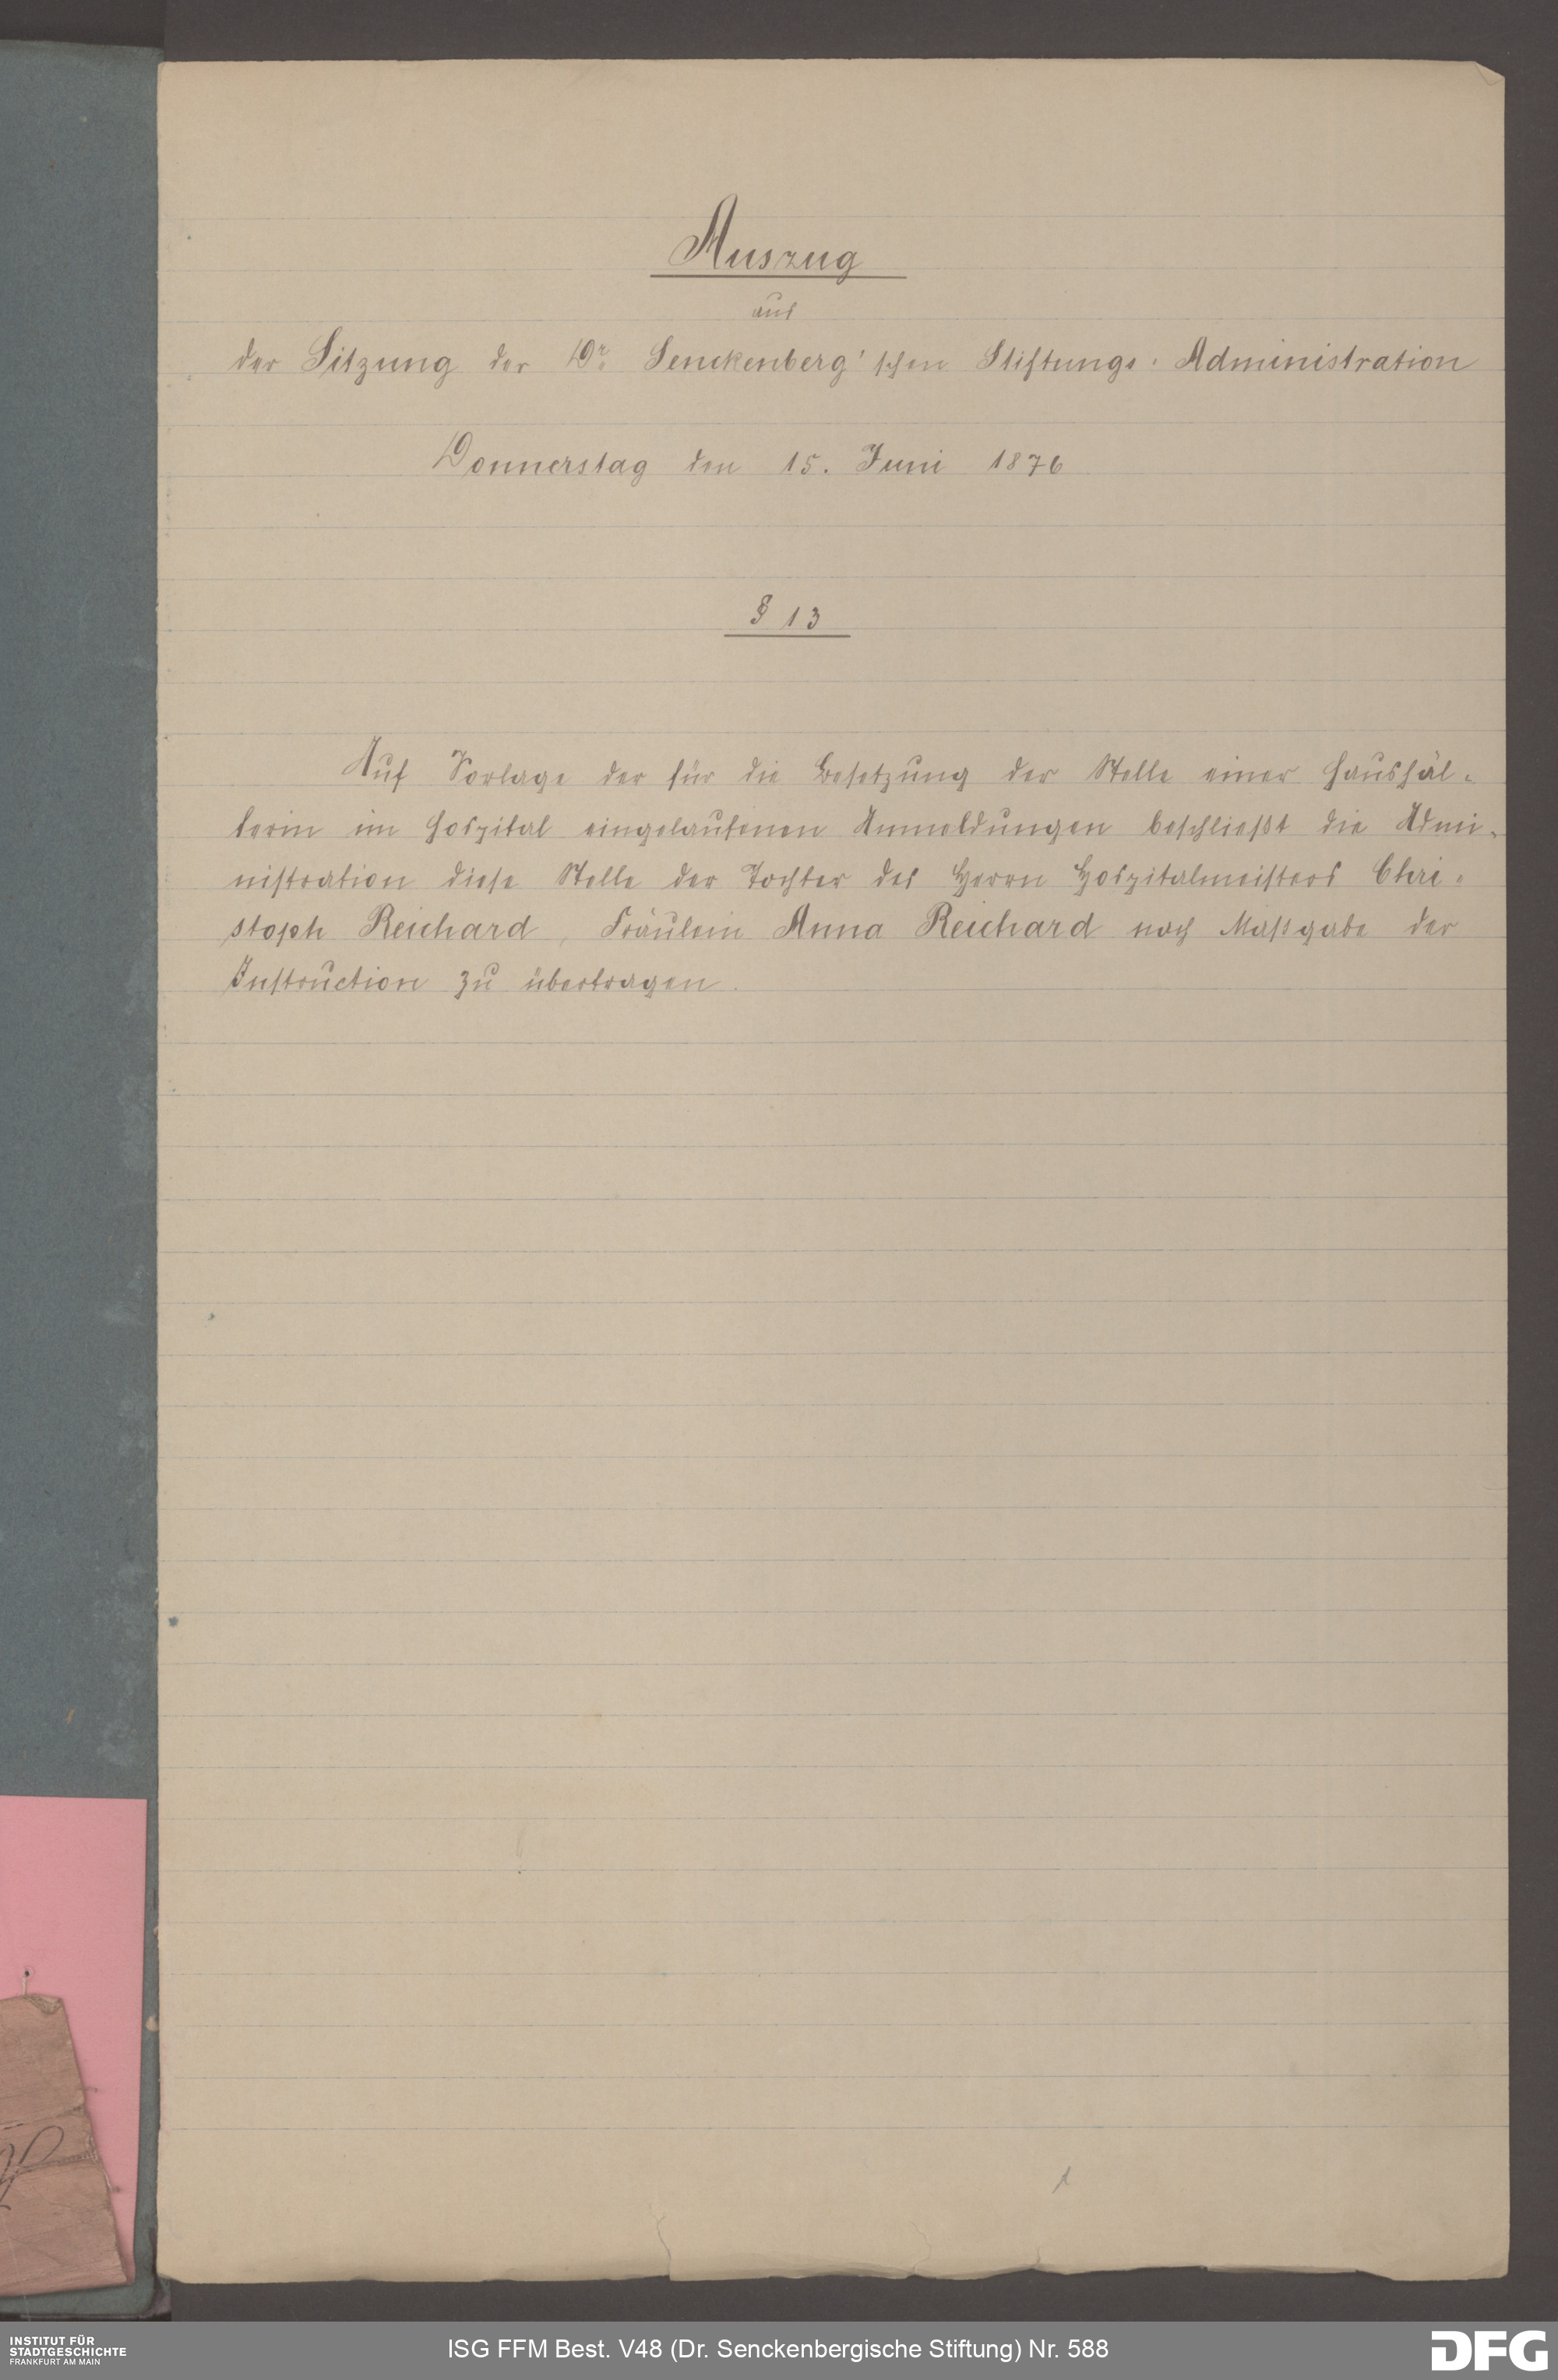 Auszug
aus
der Sitzung der Dr. Senckenberg'schen Stiftungs-Administration
Donnerstag den 15. Juni 1876
§ 13
Auf Vorlage der für die Besetzung der Stelle einer Haushäl-
terin im Hospital eingelaufenen Anmeldungen beschließt die Admi-
nistration diese Stelle der Tochter des Herrn Hospitalmeisters Chri-
stoph Reichard, Fräulein Anna Reichard nach Maßgabe der
Instruction zu übertragen.
1
INSTITUT FÜR
STADTGESCHICHTE
FRANKFURT AM MAIN
ISG FFM Best. V48 (Dr. Senckenbergische Stiftung) Nr. 588
DFG